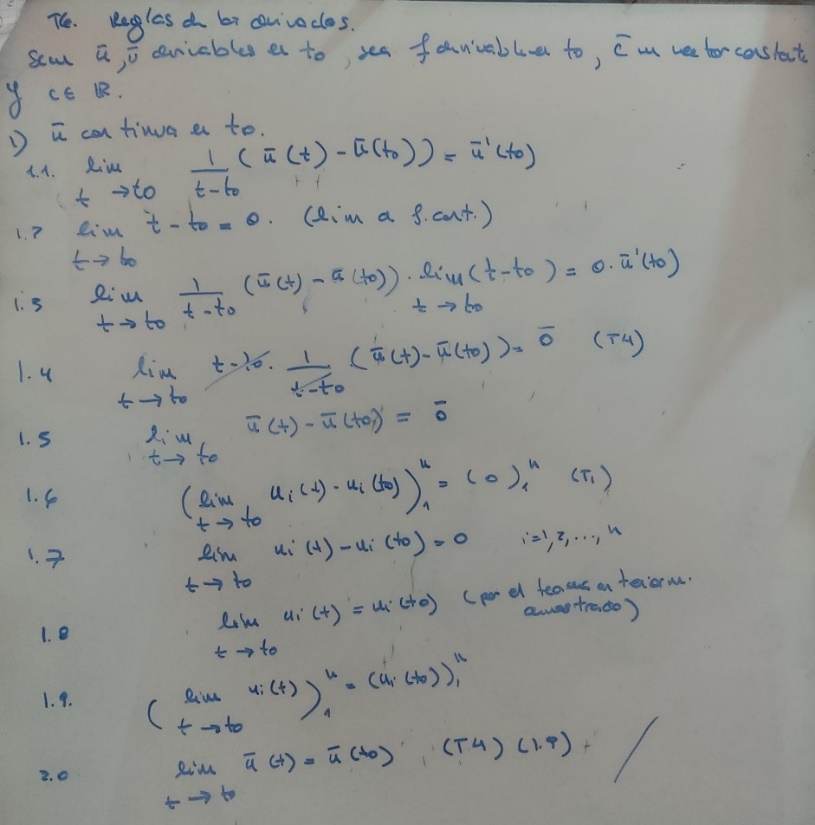 T6. Reglas de las derivadas.
Sean ū, v̄ derivables en to, sea f derivable en to, c̄ un vector constante
y c ∈ ℝ.
1) ū continua en to.
1.1. lim t→to 1/(t-to) (ū(t) - ū(to)) = ū'(to)
1.2 lim t→to t - to = 0. (lim a f. cont.)
1.3 lim t→to 1/(t-to) (ū(t) - ū(to)) · lim t→to (t-to) = 0·ū'(to)
1.4 lim t→to t-to · 1/(t-to) (ū(t) - ū(to)) = 0̄ (T4)
1.5 lim t→to ū(t) - ū(to) = 0̄
1.6 (lim t→to ui(t) - ui(to))₁ⁿ = (0)₁ⁿ (T1)
1.7 lim t→to ui(t) - ui(to) = 0 i=1,2,...,n
1.8 lim t→to ui(t) = ui(to) (por el teorema anteriorm.
demostrado)
1.9. (lim t→to ui(t))₁ⁿ = (ui(to))₁ⁿ
2.0 lim t→to ū(t) = ū(to) (T4) (1.9) /